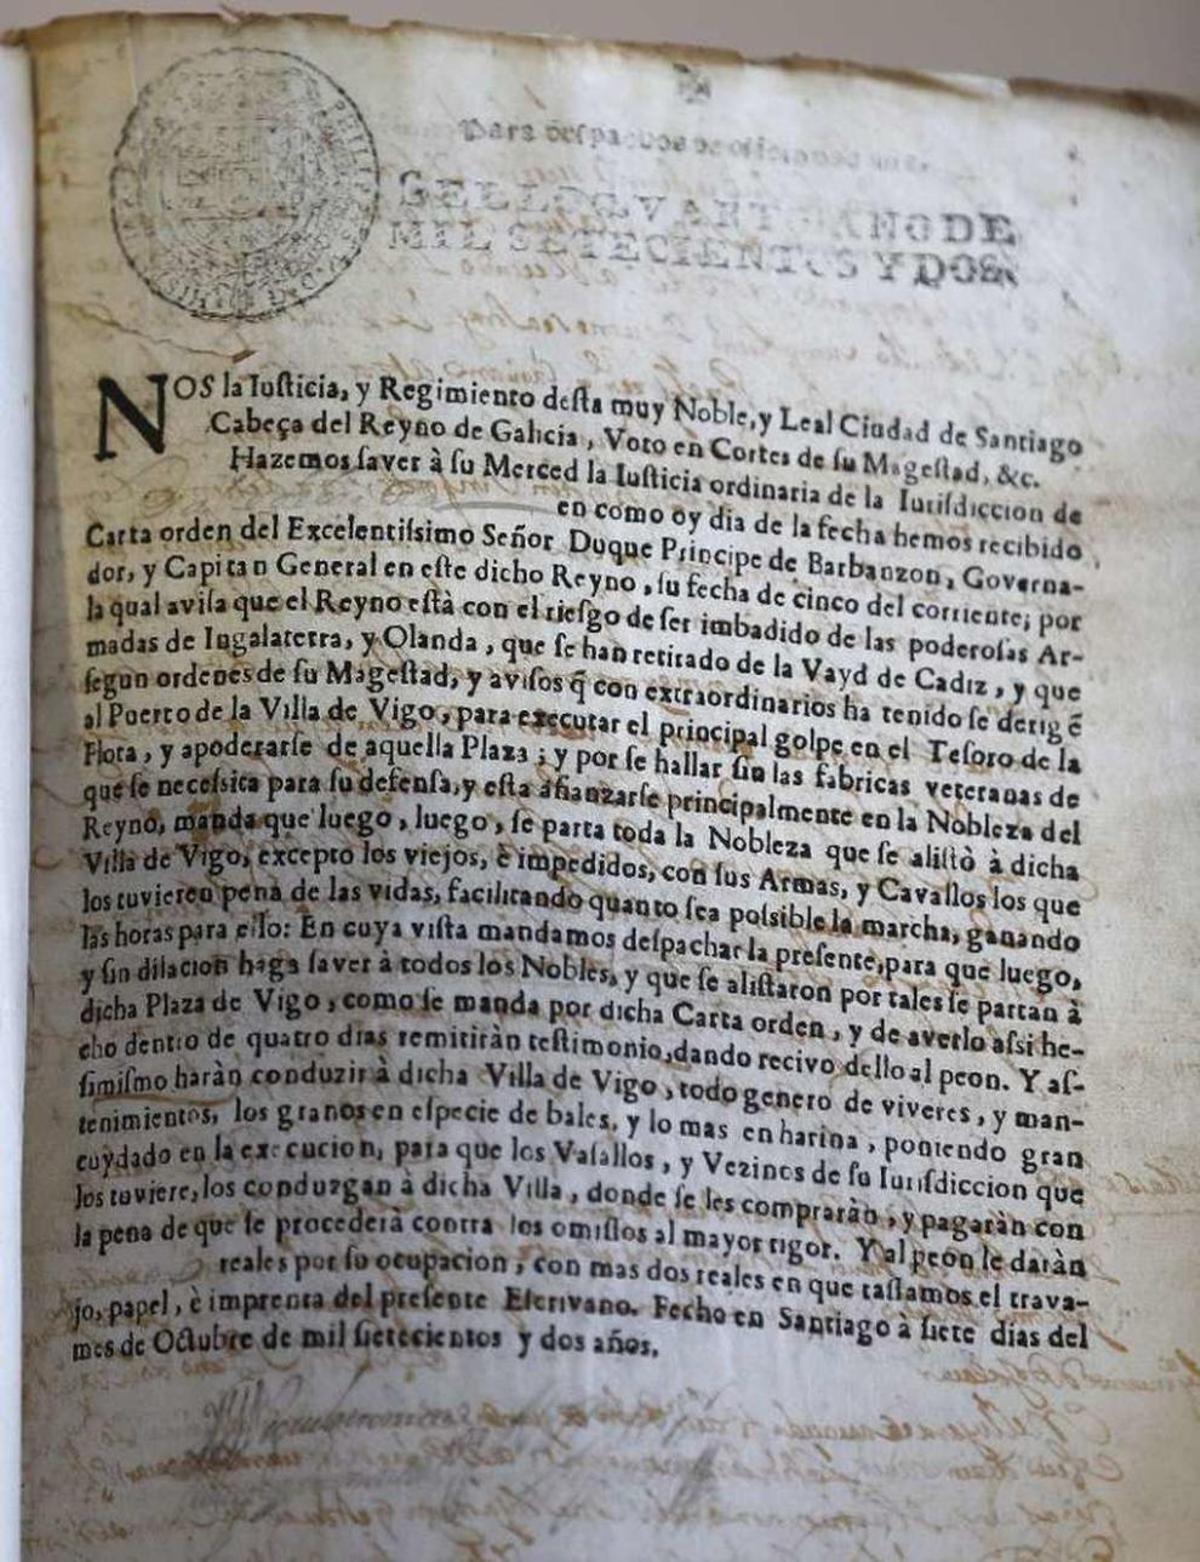 Para despachos de oficio
SELLO QVARTO, AÑO DE
MIL SETECIENTOS Y DOS
NOS la Iusticia, y Regimiento desta muy Noble, y Leal Ciudad de Santiago
Cabeça del Reyno de Galicia, Voto en Cortes de su Magestad, &c.
Hazemos saver à su Merced la Iusticia ordinaria de la Iurisdiccion de
en como oy dia de la fecha hemos recibido
Carta orden del Excelentissimo Señor Duque Principe de Barbanzon, Governa-
dor, y Capitan General en este dicho Reyno, su fecha de cinco del corriente; por
la qual avisa que el Reyno està con el riesgo de ser imbadido de las poderosas Ar-
madas de Ingalaterra, y Olanda, que se han retirado de la Vayd de Cadiz, y que
segun ordenes de su Magestad, y avisos q̃ con extraordinarios ha tenido se derigẽ
al Puerto de la Villa de Vigo, para executar el principal golpe en el Tesoro de la
Flota, y apoderarse de aquella Plaza; y por se hallar sin las fabricas veteranas de
que se necessita para su defensa, y esta afianzarse principalmente en la Nobleza del
Reyno, manda que luego, luego, se parta toda la Nobleza que se alistò à dicha
Villa de Vigo, excepto los viejos, è impedidos, con sus Armas, y Cavallos los que
los tuvieren pena de las vidas, facilitando quanto sea possible la marcha, ganando
las horas para ello: En cuya vista mandamos despachar la presente, para que luego,
y sin dilacion haga saver à todos los Nobles, y que se alistaron por tales se partan à
dicha Plaza de Vigo, como se manda por dicha Carta orden, y de averlo assi he-
cho dentro de quatro dias remitiràn testimonio, dando recivo dello al peon. Y as-
simismo haràn conduzir à dicha Villa de Vigo, todo genero de viveres, y man-
tenimientos, los granos en especie de bales, y lo mas en harina, poniendo gran
cuydado en la execucion, para que los Vasallos, y Vezinos de su Iurisdiccion que
los tuviere, los conduzgan à dicha Villa, donde se les compraràn, y pagaràn con
la pena de que se procederà contra los omissos al mayor rigor. Y al peon le daràn
reales por su ocupacion, con mas dos reales en que tassamos el trava-
jo, papel, è imprenta del presente Escrivano. Fecho en Santiago à siete dias del
mes de Octubre de mil sietecientos y dos años.